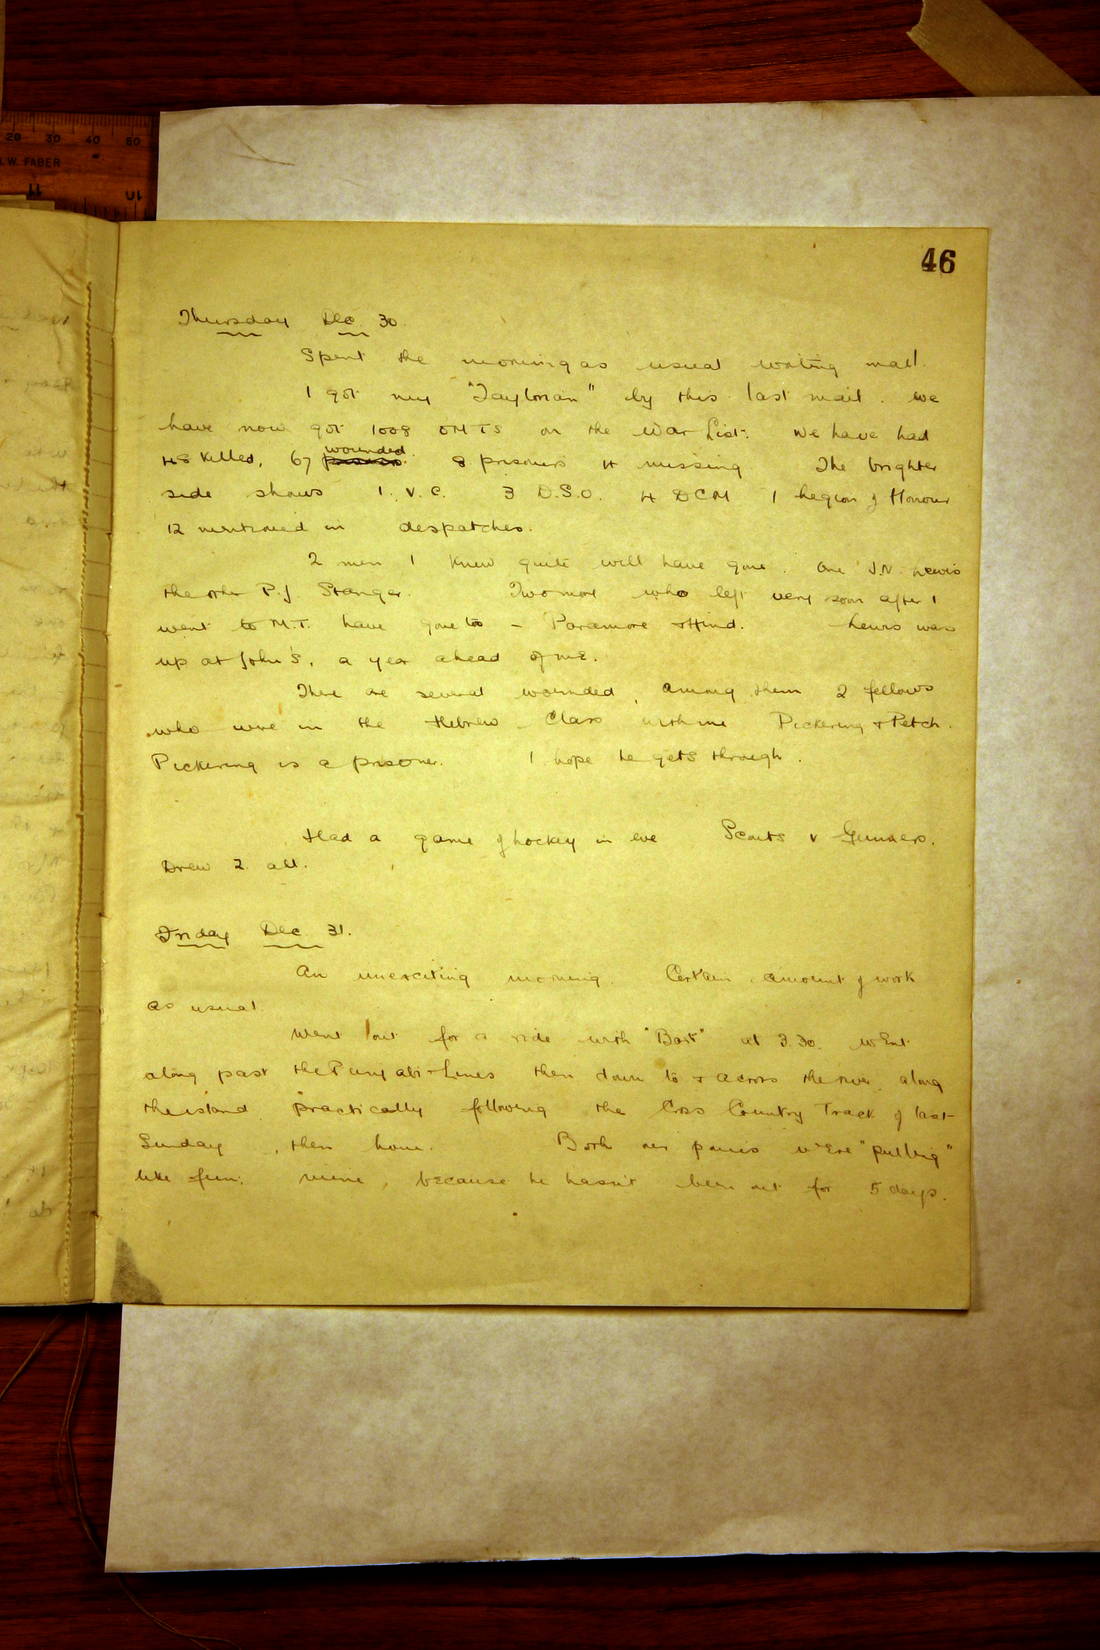 20 30 40 50
W. FABER
46
Thursday Dec 30.
Spent the morning as usual writing mail.
I got my "Taylorian" by this last mail. We
have now got 1008 OMTS on the War List. We have had
48 killed, 67 wounded 8 prisoners 4 missing The brighter
side shows 1. V.C. 3 D.S.O. 4 DCM 1 Legion of Honour
12 mentioned in despatches.
2 men I knew quite well have gone. One J.N. Lewis
the other P.J. Stanger. Two more who left very soon after I
went to M.T. have gone too - Paramore & Hind. Lewis was
up at John's, a year ahead of me.
There are several wounded, among them 2 fellows
who were in the Hebrew Class with me Pickering & Petch.
Pickering is a prisoner. I hope he gets through.
Had a game of hockey in eve Scouts v Gunners.
Drew 2 all.
Friday Dec 31.
An unexciting morning. Certain amount of work
as usual.
Went out for a ride with "Bart" at 3.30. Went
along past the Punjabi Lines then down to & across the river along
the island practically following the Cross Country Track of last
Sunday, then home. Both our ponies were "pulling"
like fun: mine, because he hasn't been out for 5 days.